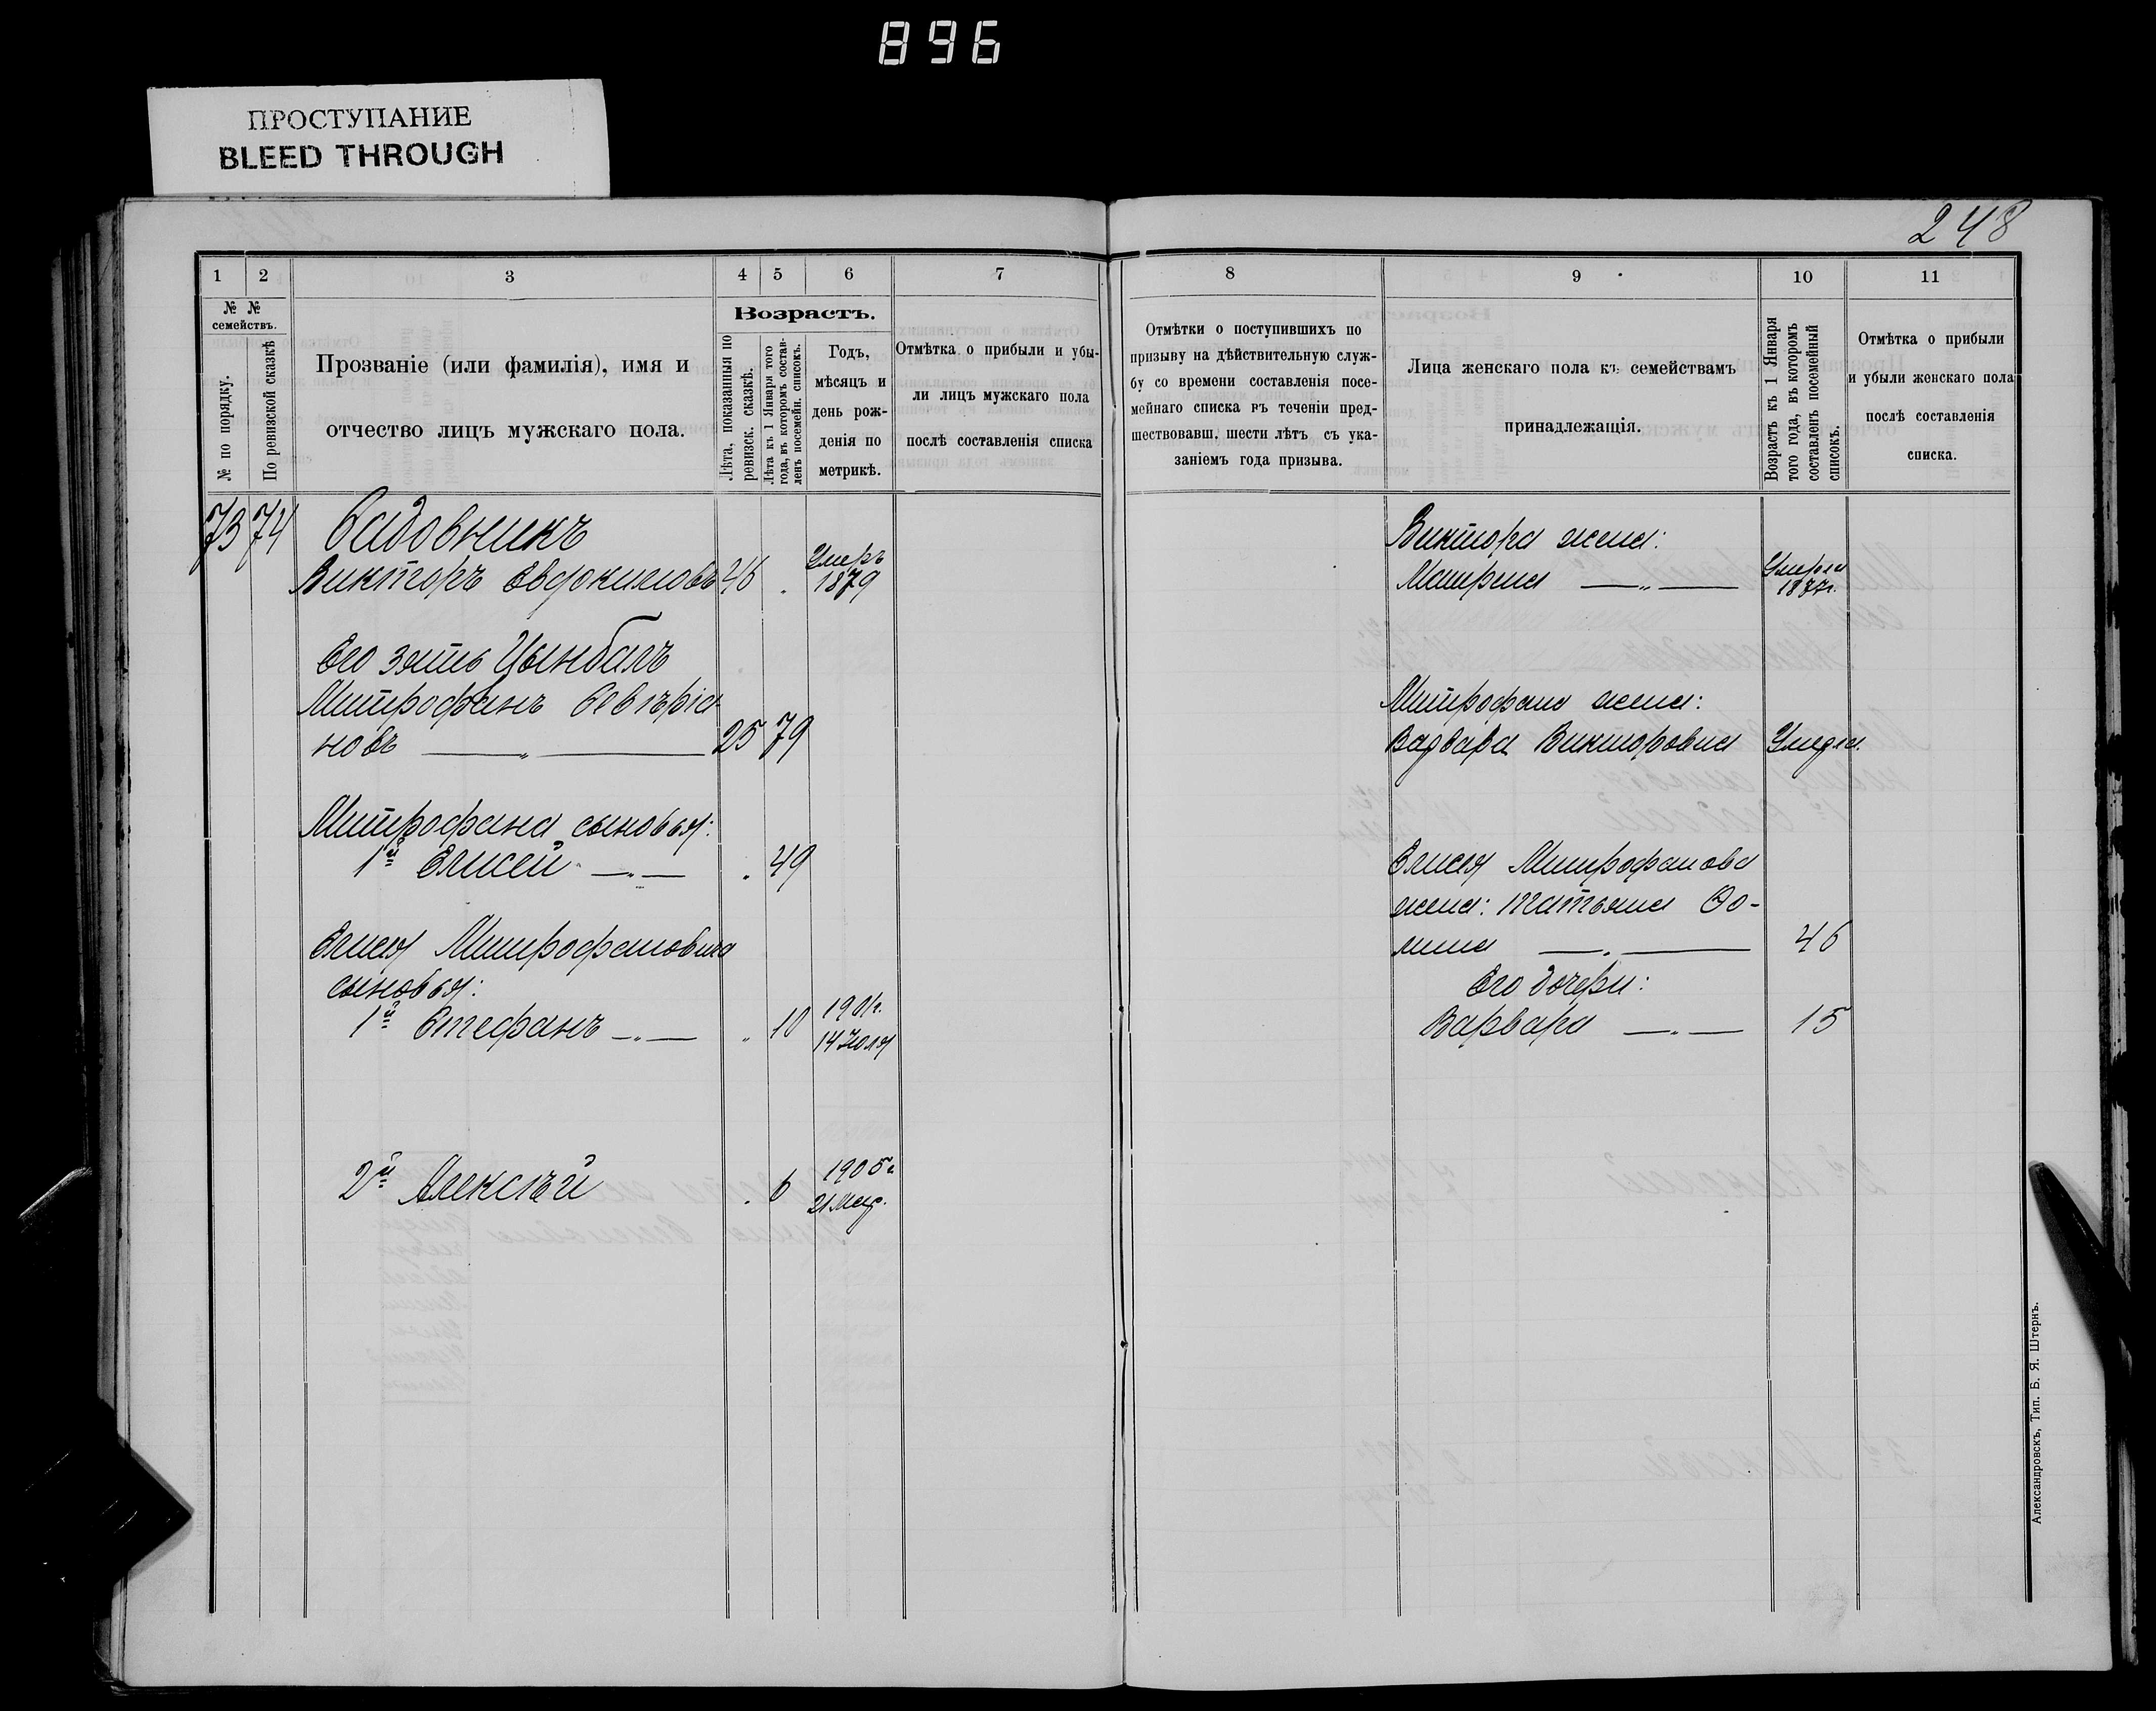 896
ПРОСТУПАНИЕ
BLEED THROUGH
248
1 2 3 4 5 6 7
№ №
семействъ.
№ по порядку.
По ревизской сказкѣ
Прозваніе (или фамилія), имя и
отчество лицъ мужскаго пола.
Возрастъ.
Лѣта, показанныя по
ревизск. сказкѣ.
Лѣта къ 1 Января того
года, въ которомъ состав-
ленъ посемейн. списокъ.
Годъ,
мѣсяцъ и
день рож-
денія по
метрикѣ.
Отмѣтка о прибыли и убы-
ли лицъ мужскаго пола
послѣ составленія списка
73 74 Садовникъ
Викторъ Евдокимовъ 46 . Умеръ
1879
Его зять Цынбалъ
Митрофанъ Севѣріа-
новъ — „ — 25 79
Митрофана сыновья:
1й Елисей — „ — . 49
Елисея Митрофановича
сыновья:
1й Стефанъ — „ — „ 10 1901г.
14 Іюля
2й Алексѣй . 6 1905г.
21 Мар.
8 9 10 11
Отмѣтки о поступившихъ по
призыву на дѣйствительную служ-
бу со времени составленія посе-
мейнаго списка въ теченіи пред-
шествовавш. шести лѣтъ съ ука-
заніемъ года призыва.
Лица женскаго пола къ семействамъ
принадлежащія.
Возрастъ къ 1 Января
того года, въ которомъ
составленъ посемейный
списокъ.
Отмѣтка о прибыли
и убыли женскаго пола
послѣ составленія
списка.
Виктора жена:
Матрена — „ — Умерла
1877г.
Митрофана жена:
Варвара Викторовна Умерла.
Елисея Митрофанова
жена: Татьяна Фо-
мина — „ — 46
Его дочери:
Варвара — „ — 15
Александровскъ, Тип. Б. Я. Штернъ.